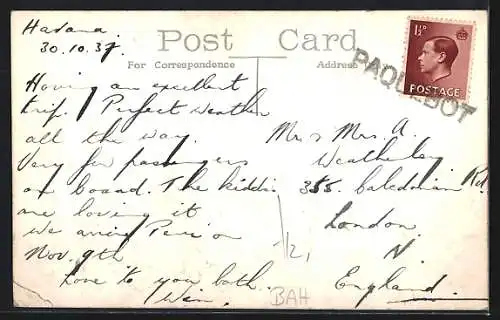 Havana.
30.10.37.
Post Card
For Correspondence
Address
1½D
POSTAGE
PAQUEBOT
Having an excellent
trip. Perfect weather
all the way.
Very few passengers
on board. The kiddies
are loving it
we arrive
Nov. 9th
Love to you both.
Win.
Mr & Mrs. A.
Weatherley
355. Caledonian Rd.
London
N
England.
/2,
BAH